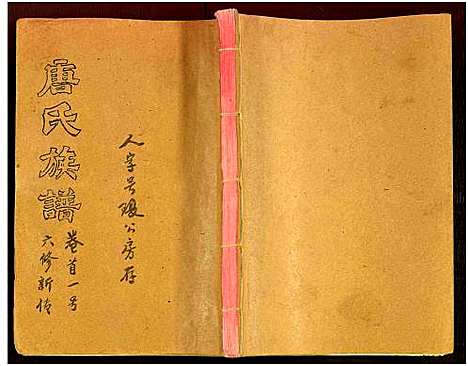 人字号公房存
唐氏族譜
卷首一号
六修新传